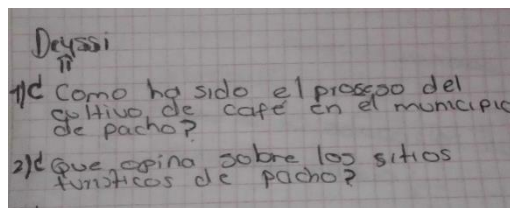 Deyssi
1)¿ Como ha sido el prosceso del
cultivo de café en el municipio
de pacho?
2)¿ Que opina sobre los sitios
turisticos de pacho?